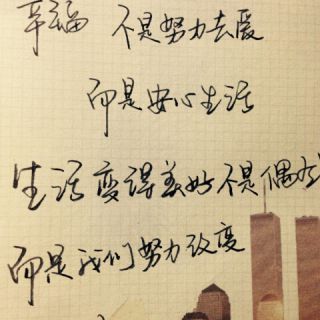 幸福 不是努力去爱
而是安心生活
生活变得美好不是偶然
而是我们努力改变